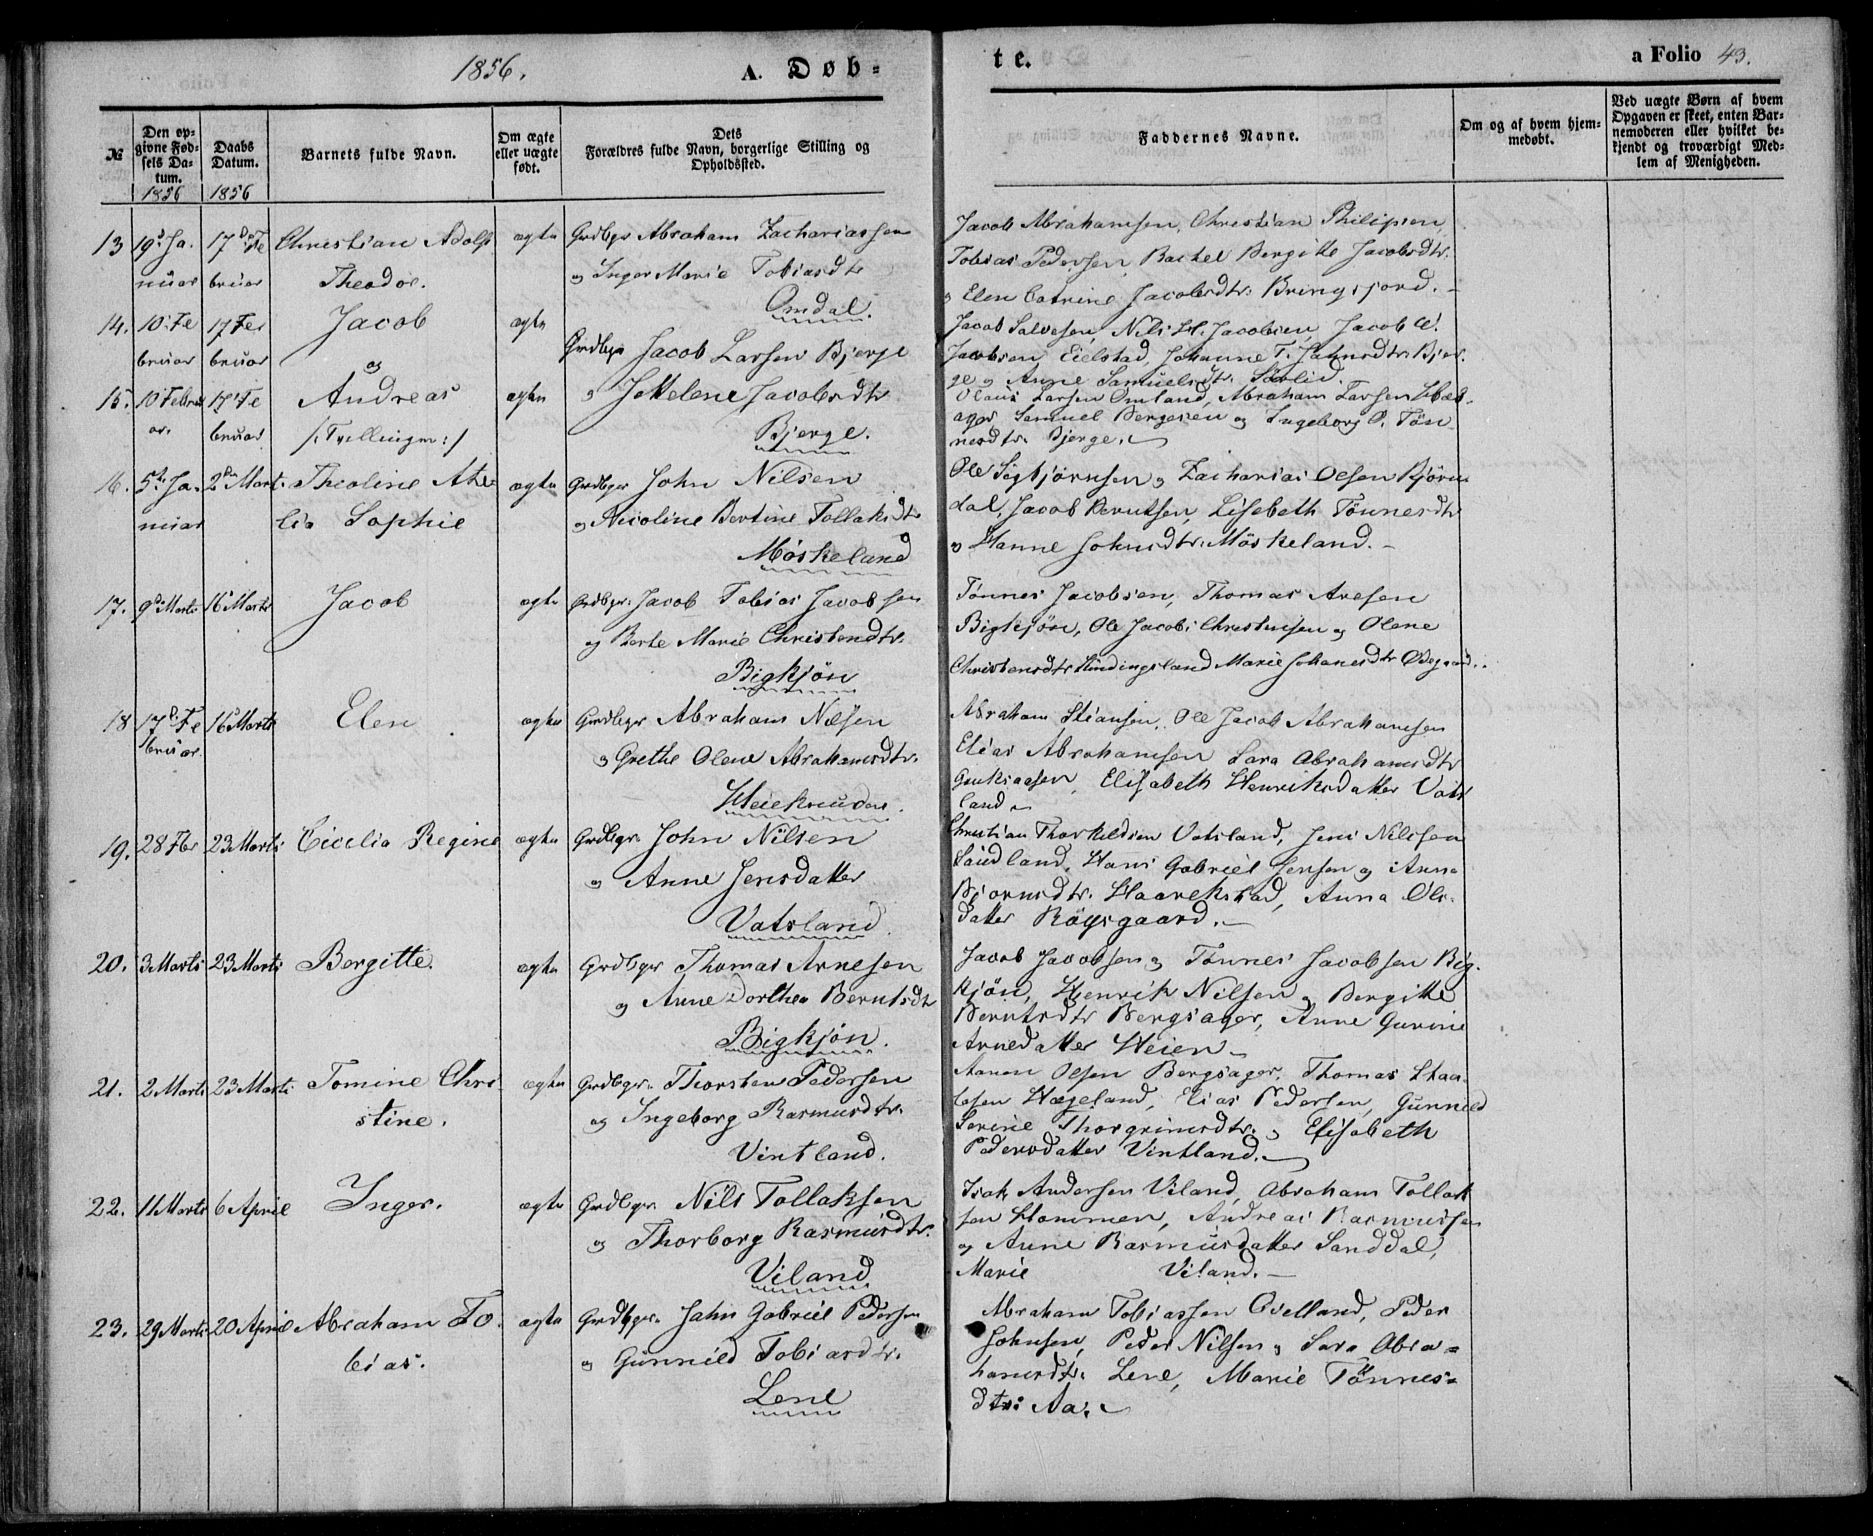 1856.
A. Døb-
te.
a Folio 43.
№
Den op-
givne Fød-
sels Da-
tum.
1856
Daabs
Datum.
1856
Barnets fulde Navn.
Om ægte
eller uægte
født.
Dets
Forældres fulde Navn, borgerlige Stilling og
Opholdssted.
Faddernes Navne.
Om og af hvem hjem-
medøbt.
Ved uægte Børn af hvem
Opgaven er skeet, enten Bar-
nemoderen eller hvilket be-
kjendt og troværdigt Med-
lem af Menigheden.
13 19de Ja- 17de Fe Christian Adolf ægte Grdbgr Abraham Zachariassen
nuar bruar Theodor. og Inger Marie Tobiasdtr
Omdal.
Jacob Abrahamsen, Christian Philipsen,
Tobias Pedersen, Rachel Bergitte Jacobsdtr.
og Elen Catrine Jacobsdtr. Bringsjord.
14. 10 Fe 17 Fe Jacob ægte
bruar bruar og Grdbgr Jacob Larsen Bjerge
Jacob Salvesen, Nils H. Jacobsen, Jacob
Jacobsen Eielstad, Johanne T. Jahnsdtr. Bjer-
ge og Anne Samuelsdtr.
15. 10 Febru 17 Fe Andreas ægte og Helene Jacobsdtr
ar. bruar /:Tvillinger:/ Bjerge.
Olaus Larsen Omland, Abraham Larsen
Samuel Bergesen og Ingeborg O. Tøn-
nesdtr. Bjerge.
16. 5te Ja- 2den Mart. Theoline Ate- ægte Grdbgr John Nilsen
nuar lia Sophie og Nicoline Bertine Tollaksdtr
Møskeland
Ole Sigbjørnsen og Zacharias Olsen Bjørn-
dal, Jacob Berntsen, Lisebeth Tønnesdtr
og Hanne Johnsdtr. Møskeland.
17. 9de Marts 16 Marts Jacob ægte Grdbgr. Jacob Tobias Jacobsen
og Berte Marie Christensdtr.
Bigkjøn
Tønnes Jacobsen, Thomas Aresen
Bigkjøn, Ole Jacob Christensen og Olene
Christensdtr Hundingsland Marie Johanesdtr Ødegaard.
18 17de Fe 16 Marts Elen ægte Grdbgr Abraham Nilsen
bruar. og Grethe Olene Abrahamsdtr.
Heieknuden.
Abraham Stiansen, Ole Jacob Abrahamsen
Elias Abrahamsen Sara Abrahamsdtr
Elisabeth Henriksdatter Vats
land
19. 28 Fbr 23 Marts Cicelia Regine ægte Grdbgr. John Nilsen
og Anne Jensdatter
Vatsland.
Christian Thorkildsen Vatsland, Jens Nilssen
Saudland, Hans Gabriel Jensen og Anna
Bjornsdtr. Haarekstad, Anna Ols-
datter Røysgaard.
20. 3 Marts 23 Marts Bergitte. ægte Grdbgr Thomas Arnesen
og Anne Dorthea Berntsdtr
Bigkjøn.
Jacob Jacobsen og Tønnes Jacobsen Big-
kjøn, Henrik Nilsen og Bergitte
Berntsdtr Bergsager, Anne Gurine
Arnedatter Heien
21. 2 Marts 23 Marts Tomine Chri ægte Grdbgr. Thorsten Pedersen
stine. og Ingeborg Rasmusdtr.
Vintland.
Aanen Olsen Bergsager, Thomas Staa-
lesen Hægeland, Elias Pedersen, Gunnild
Serine Thorgrimsdtr. og Elisabeth
Pedersdatter Vintland.
22. 11 Marts 6 April Inger. ægte Grdbgr. Nils Tollaksen
og Thorborg Rasmusdtr.
Viland
Isak Andersen Viland, Abraham Tollak
sen Hommen, Andreas Rasmussen
og Anne Rasmusdatter Sanddal,
Marie Viland.
23. 29 Marts 20 April Abraham To- ægte Grdbgr. Jahn Gabriel Pedersen
bias. og Gunnild Tobiasdtr.
Lene
Abraham Tobiassen Qvelland, Peder
Johnsen, Peder Nilsen og Sara Abra-
hamsdtr. Lene, Marie Tønnes-
dtr: Aa.